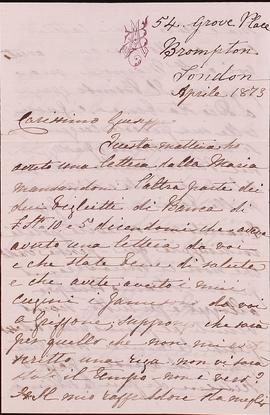 54. Grove Place
Brompton
London
Aprile 1873
Carissimo Giuseppe
Questa mattina ho
avuto una lettera dalla Maria
mandandomi l'altra parte dei
due Biglietti di Banca di
£ 10 e 5 dicendomi che aveva
avuto una lettera da voi
e che state bene di salute
e che avete avuto i miei
cugini i da voi
a Griffone, suppongo che sarà
per quello che non mi
scritto una riga non vi
il tempo non è vero?
Il mio raffreddore sta meglio